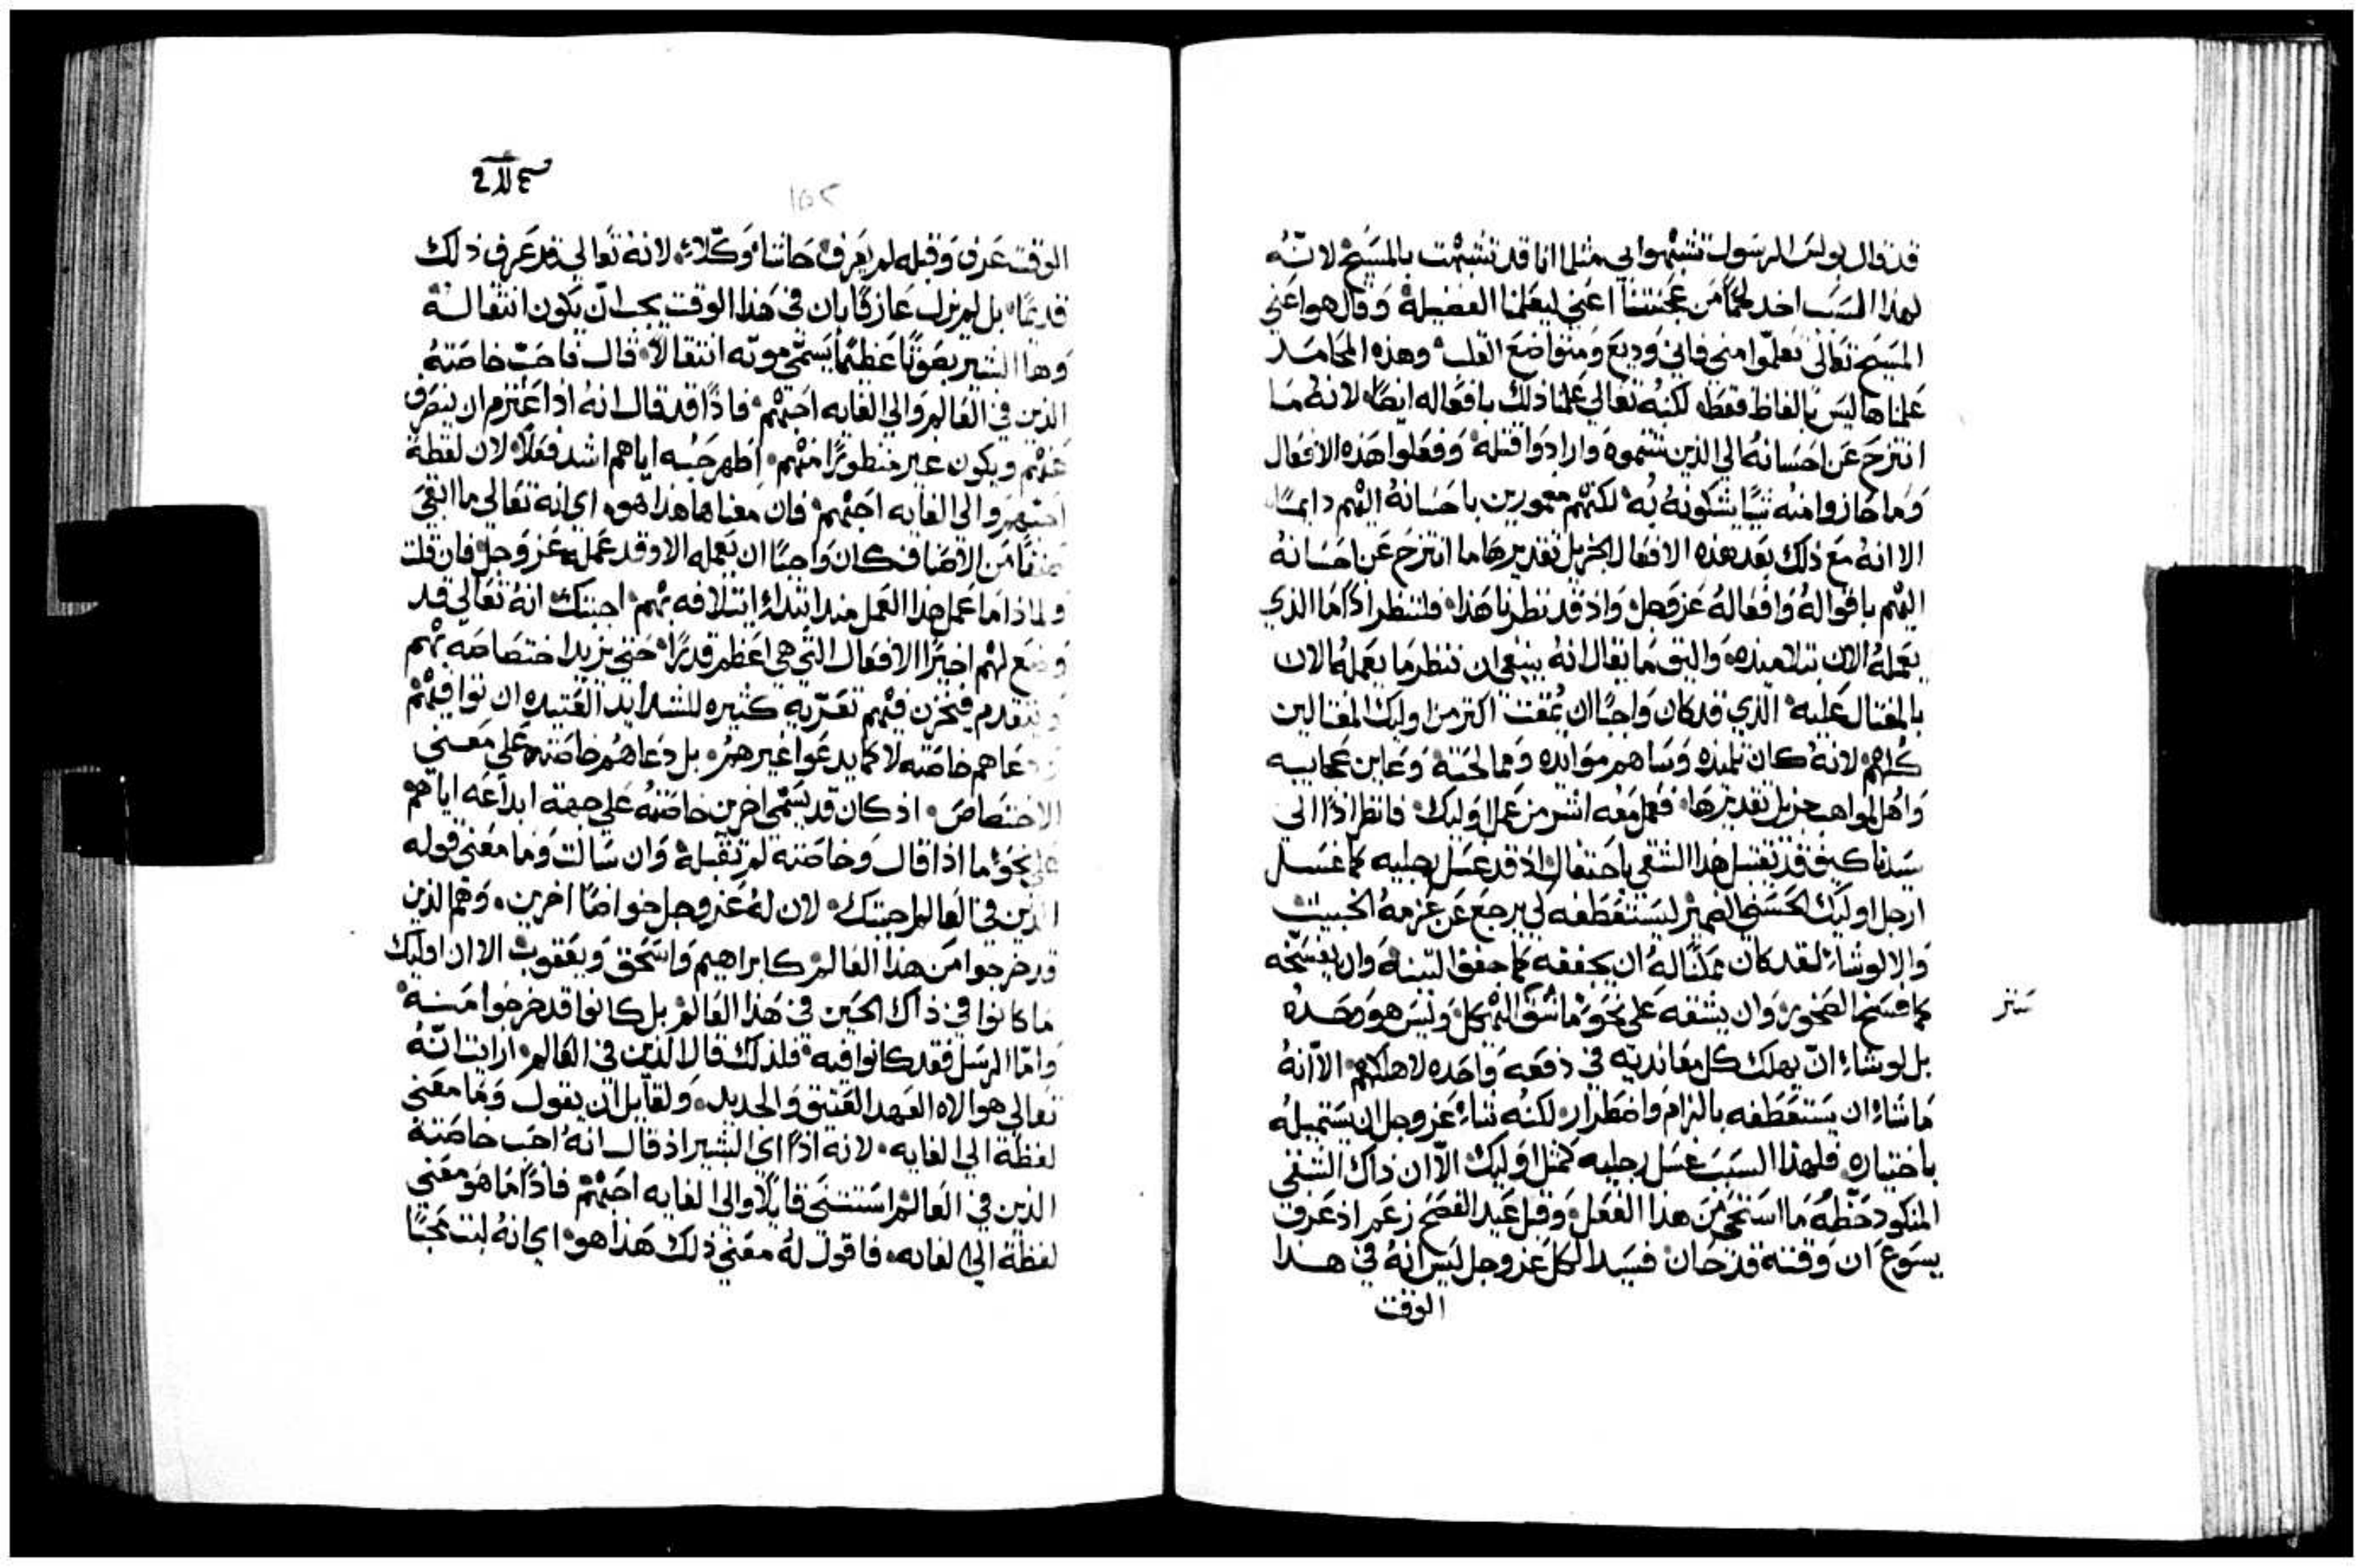 قد قال بولس الرسول تشبهوا بي مثلما انا قد تشبهت بالمسيح لانه
لهذا السبب اخد لحمًا من عجنتنا اعني ليعلمنا الفضيلة وقال هو اعني
المسيح تعالى تعلموا مني فاني وديع ومتواضع القلب وهذه المحامد
علمناها ليس بالفاظ فقط لكنه تعالي علمنا ذلك بافعاله ايضًا لانه ما
انتزح عن احسانه الي الذين شتموه وارادوا قتله وفعلوا هذه الافعال
وما حازوا منه شيًا يشكونه به لكنهم مغمورين باحسانه اليهم دايمًا
الا انه مع ذلك بعد هذه الافعال الجزيل تقديرها ما انتزح عن احسانه
اليهم باقواله وافعاله عز وجل واذ قد نظرنا هذا فلننظر اذًا ما الذي
يعمله الان بتلاميذه واليق ما يقال انه ينبغي ان ننظر ما يعمله الان
بالمغتال عليه الذي قد كان واجبًا ان يمقت اكتر من اوليك المغتالين
كلهم لانه كان تلميذه وساهم موايده وممالحته وعاين عجايبه
واهل لمواهب جزيل تقديرها ففعل معه اشر من عمل اوليك فانظر اذًا الي
سيدنا كيف قد تغسل هذا الشقي باحتفال اذ قد غسل رجليه كما غسل
ارجل اوليك الحسني الضمير ليستعطفه لكي يرجع عن عزمه الخبيث
والا لو شاء لقد كان ممكنًا له ان يجففه كما جفف التينة وان يفسخه
كما فسخ الصخور وان يشقه على نحو ما شق الهيكل وليس هو وحده
بل لو شاء ان يهلك كل معانديه في دفعه واحده لاهلكهم الا انه
ما شاء ان يستعطفه بالزام واضطرار لكنه شاء عز وجل ان يستميله
باختياره فلهذا السبب غسل رجليه كمثل اوليك الا ان ذاك الشقي
المنكود حظه ما استحي من هذا الفعل وقبل عيد الفصح زعم اذ عرف
يسوع ان وقته قد حان فسيد الكل عز وجل ليس انه في هذا
الوقت
الوقت عرف وقبله لم يعرف حاشا وكلا لانه تعالي قد عرف ذلك
قديمًا بل لم يزل عارفًا بان في هذا الوقت يجب ان يكون انتقاله
وها البشير بصوتًا عظيمًا يسمي موته انتقالا قال فاحب خاصته
الذين في العالم والي الغايه احبهم فاذًا قد قال انه اذا اعتزم ان ينصرف
عنهم ويكون غير منظورًا منهم اظهر حبه اياهم اشد فعلًا لان لفظة
احبهم والي الغايه احبهم فان معناها هذا هو اي انه تعالي ما ابقي
صنفًا من الاصناف كان واجبًا ان يعمله الا وقد عمله عز وجل فان قلت
ولماذا ما عمل هذا العمل منذ ابتداء ايتلافه بهم اجبتك انه تعالي قد
وضع لهم اخيرًا الافعال التي هي اعظم قدرًا حتي يزيد اختصاصه بهم
ويتقدم فيخزن فيهم تعزيه كثيره للشدايد العتيده ان توافيهم
ودعاهم خاصته لا كما يدعوا غيرهم بل دعاهم خاصته علي معني
الاختصاص اذ كان قد يسمي اخرين خاصته علي جهة ابداعه اياهم
علي نحو ما اذا قال وخاصته لم تقبله وان سالت وما معني قوله
الذين في العالم اجبتك لان له عز وجل خواصًا اخرين وهم الذين
قد خرجوا من هذا العالم كابراهيم واسحق ويعقوب الا ان اوليك
ما كانوا في ذاك الحين في هذا العالم بل كانوا قد خرجوا منه
واما الرسل فقد كانوا فيه فلذلك قال الذين في العالم ارايت انه
تعالي هو الاه العهد العتيق والجديد ولقايل ان يقول وما معني
لفظة الي الغايه لانه اذًا اي البشير اذ قال انه احب خاصته
الذين في العالم استثني قايلًا والي الغايه احبهم فاذًا ما هو معني
لفظة الي الغايه فاقول له معني ذلك هذا هو اي انه لبت محبًا